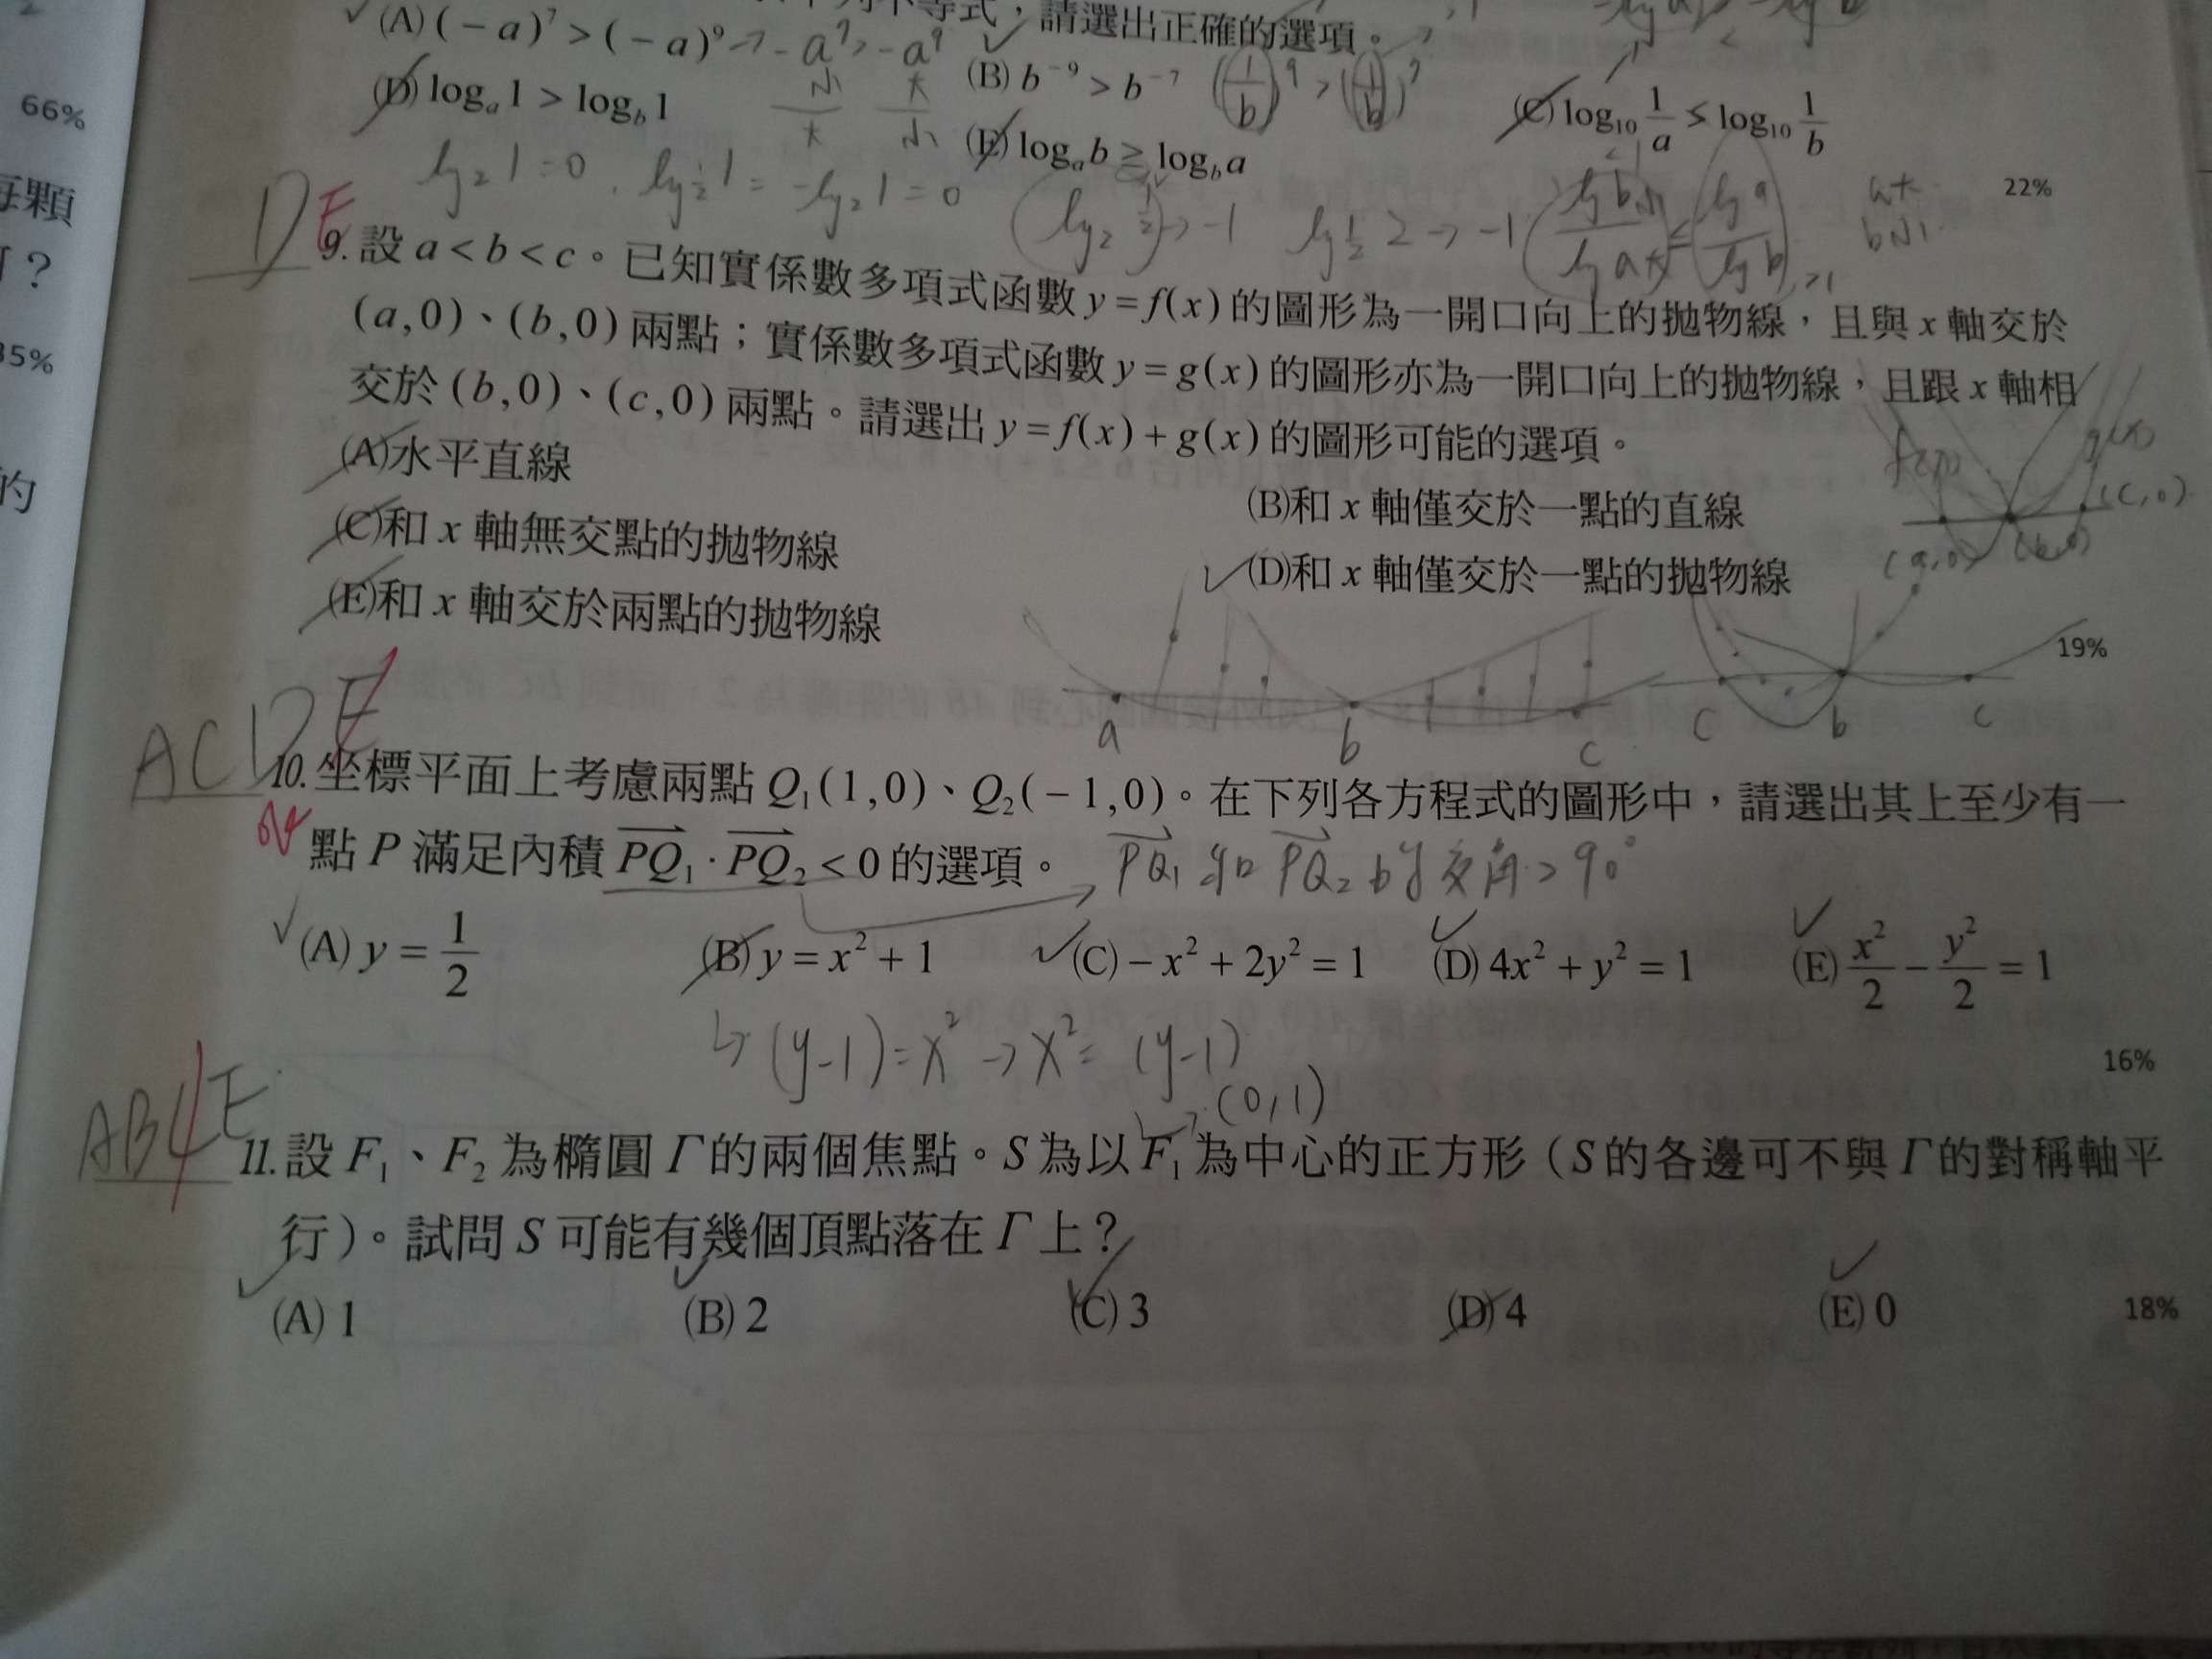 不等式，請選出正確的選項。
(A) (－a)⁷ > (－a)⁹ → －a⁷ > －a⁹
(B) b⁻⁹ > b⁻⁷ (1/b)⁹ > (1/b)⁷
(C) log₁₀ 1/a ≤ log₁₀ 1/b
(D) logₐ1 > log_b1
小 大
大 小
(E) logₐb ≥ log_ba
66%
每顆
？
35%
的
22%
a大
b小
D E
9. 設 a < b < c。已知實係數多項式函數 y = f(x) 的圖形為一開口向上的拋物線，且與 x 軸交於
(a,0)、(b,0) 兩點；實係數多項式函數 y = g(x) 的圖形亦為一開口向上的拋物線，且跟 x 軸相
交於 (b,0)、(c,0) 兩點。請選出 y = f(x) + g(x) 的圖形可能的選項。
(A)水平直線
(B)和 x 軸僅交於一點的直線
(C)和 x 軸無交點的拋物線
(D)和 x 軸僅交於一點的拋物線
(E)和 x 軸交於兩點的拋物線
f(x)
g(x)
(a,0) (b,0) (c,0)
a b c
c b c
19%
ACDE
10. 坐標平面上考慮兩點 Q₁(1,0)、Q₂(－1,0)。在下列各方程式的圖形中，請選出其上至少有一
點 P 滿足內積 PQ₁ · PQ₂ < 0 的選項。 PQ₁ 和 PQ₂ 的交角 > 90°
(A) y = 1/2 (B) y = x² + 1 (C) － x² + 2y² = 1 (D) 4x² + y² = 1 (E) x²/2 － y²/2 = 1
↳ (y-1) = x² → x² = (y-1)
(0,1)
16%
ABCE
11. 設 F₁、F₂ 為橢圓 Γ 的兩個焦點。S 為以 F₁ 為中心的正方形（S 的各邊可不與 Γ 的對稱軸平
行）。試問 S 可能有幾個頂點落在 Γ 上？
(A) 1 (B) 2 (C) 3 (D) 4 (E) 0
18%